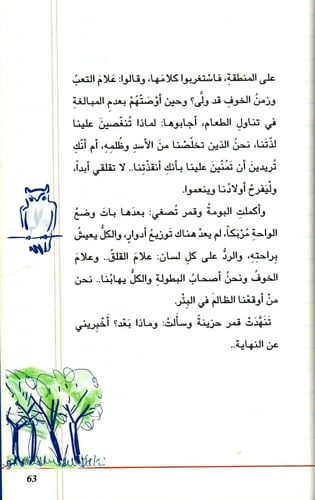 على المنطقةِ، فاسْتغربوا كلامَها، وقالوا: عَلامَ التعبُ
وزمنُ الخوفِ قد ولَّى؟ وحين أوْصَتْهُمْ بعدمِ المبالغةِ
في تناولِ الطعامِ، أجابوها: لماذا تُنغِّصينَ علينا
لذّتَنا، نحنُ الذين تخلّصْنا منَ الأسدِ وظُلمِهِ، أم أنّكِ
تُريدينَ أن تَمُنّينَ علينا بأنكِ أنقذْتِنا.. لا تقلقي أبداً،
ولْيَفرحْ أولادُنا وينعموا.
وأكملتِ البومةُ وقمر تُصغي: بعدَها باتَ وضعُ
الواحةِ مُرْبَكاً، لم يعدْ هناك توزيعُ أدوارٍ، والكلُّ يعيشُ
بِراحتِهِ، والردُّ على كلِّ لسان: علامَ القلقُ.. وعلامَ
الخوفُ ونحنُ أصحابُ البطولةِ والكلُّ يهابُنا.. نحن
منْ أوقعْنا الظالمَ في البِئْر.
تَنهَّدَتْ قمر حزينةً وسألتْ: وماذا بَعْد؟ أخْبِريني
عن النهاية..
63